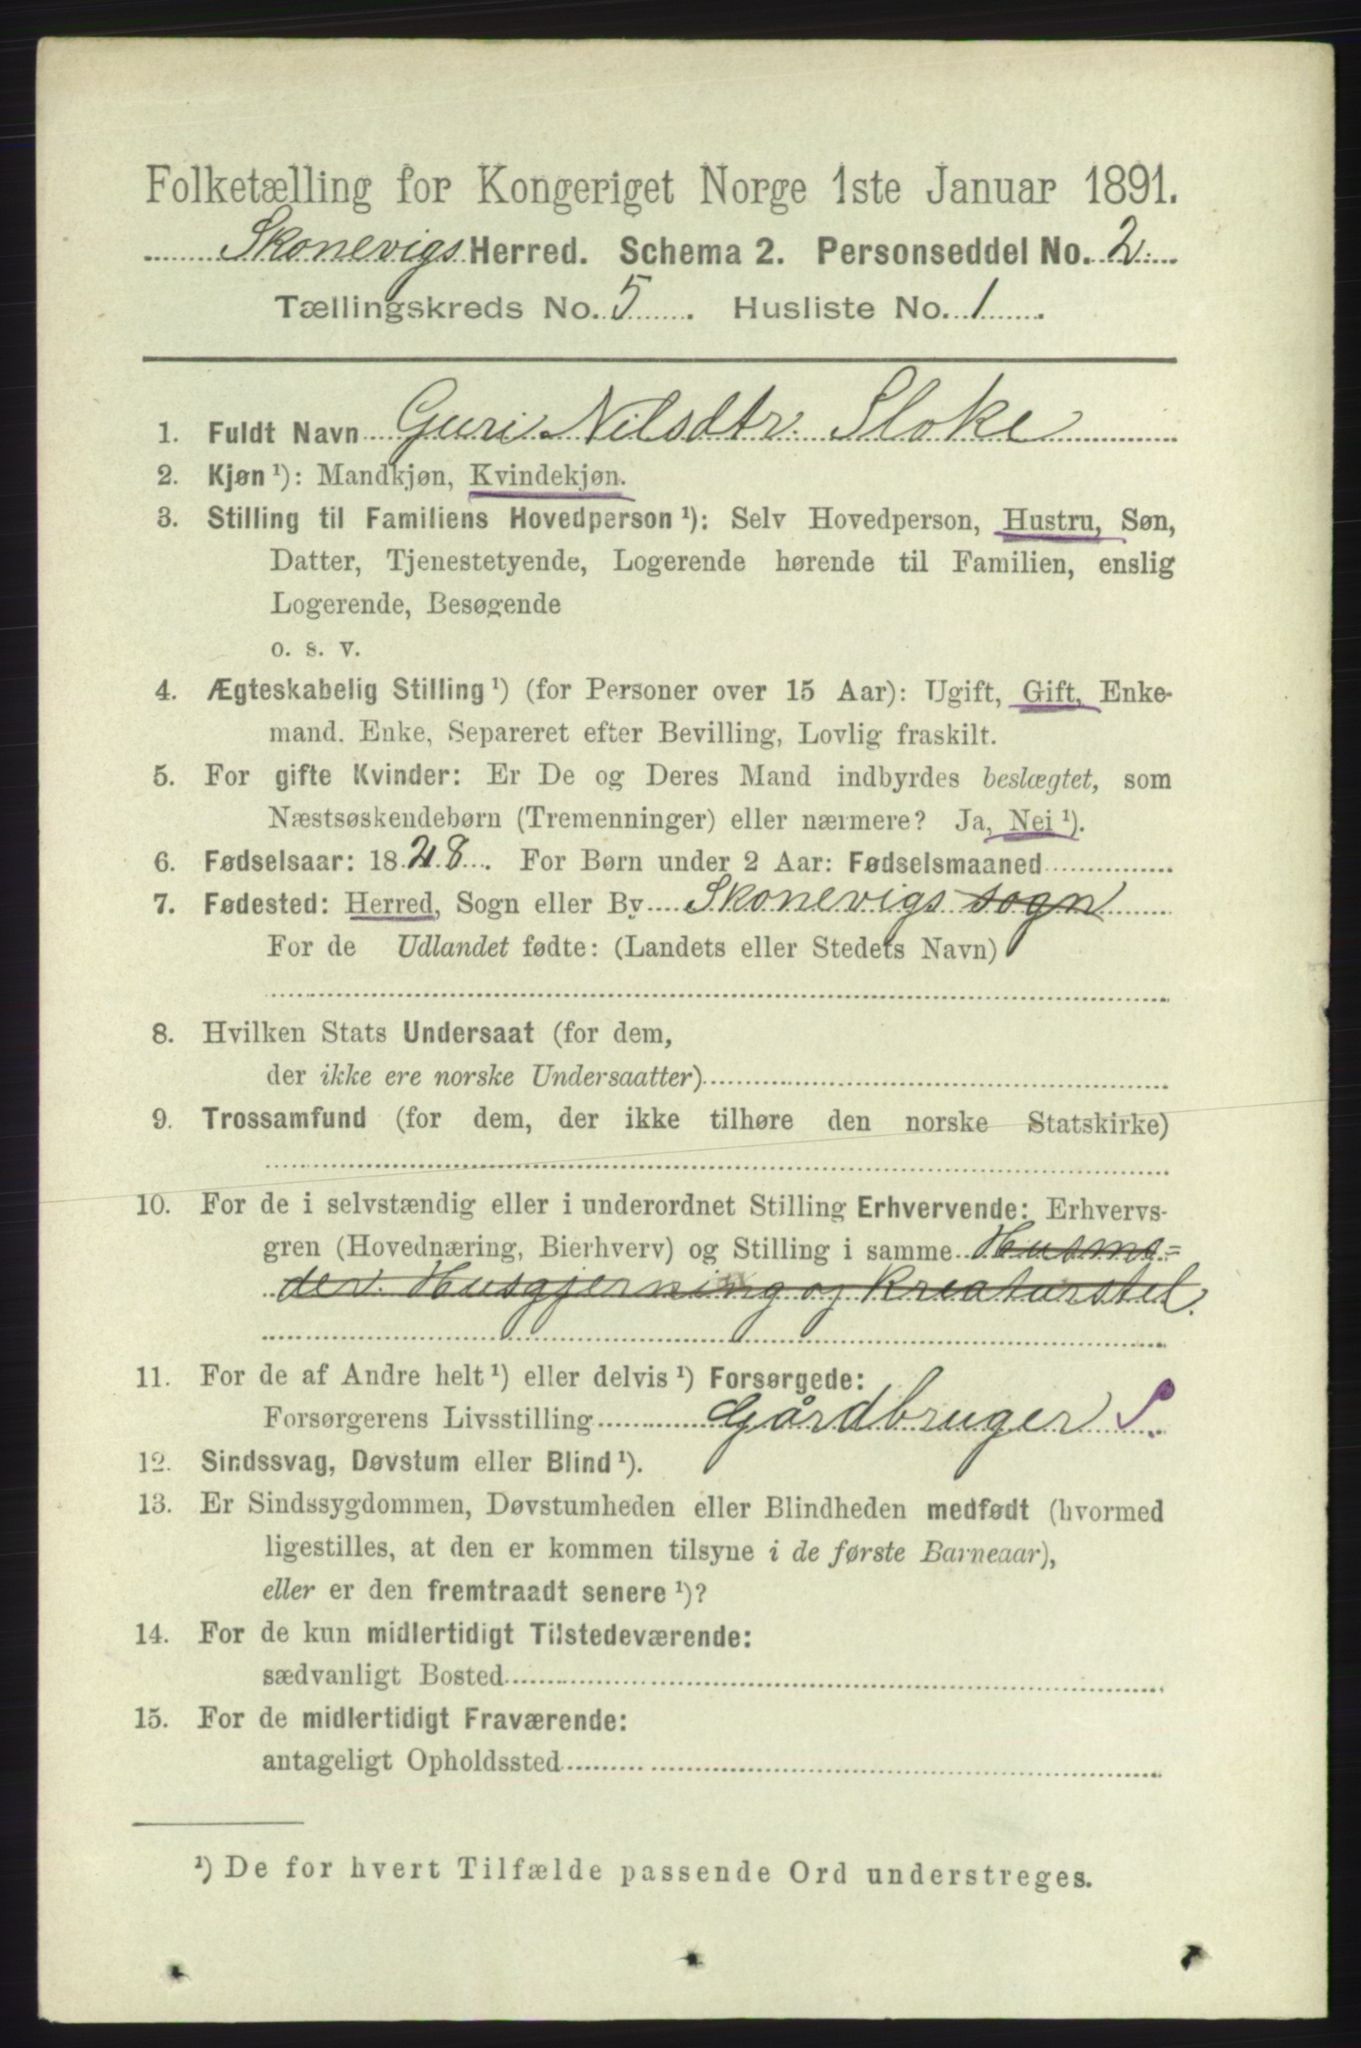 Folketælling for Kongeriget Norge 1ste Januar 1891.
Skonevigs Herred. Schema 2. Personseddel No. 2
Tællingskreds No. 5 . Husliste No. 1 .
1. Fuldt Navn Guri Nilsdtr. Sloke
2. Kjøn ¹): Mandkjøn, Kvindekjøn.
3. Stilling til Familiens Hovedperson ¹): Selv Hovedperson, Hustru, Søn,
Datter, Tjenestetyende, Logerende hørende til Familien, enslig
Logerende, Besøgende
o. s. v.
4. Ægteskabelig Stilling ¹) (for Personer over 15 Aar): Ugift, Gift, Enke-
mand. Enke, Separeret efter Bevilling, Lovlig fraskilt.
5. For gifte Kvinder: Er De og Deres Mand indbyrdes beslægtet, som
Næstsøskendebørn (Tremenninger) eller nærmere? Ja, Nei ¹).
6. Fødselsaar: 1828. For Børn under 2 Aar: Fødselsmaaned
7. Fødested: Herred, Sogn eller By Skonevigs sogn
For de Udlandet fødte: (Landets eller Stedets Navn)
8. Hvilken Stats Undersaat (for dem,
der ikke ere norske Undersaatter)
9. Trossamfund (for dem, der ikke tilhøre den norske Statskirke)
10. For de i selvstændig eller i underordnet Stilling Erhvervende: Erhvervs-
gren (Hovednæring, Bierhverv) og Stilling i samme Husmo=
der. Husgjerning og Kreaturstel.
11. For de af Andre helt ¹) eller delvis ¹) Forsørgede:
Forsørgerens Livsstilling Gårdbruger S.
12. Sindssvag, Døvstum eller Blind ¹).
13. Er Sindssygdommen, Døvstumheden eller Blindheden medfødt (hvormed
ligestilles, at den er kommen tilsyne i de første Barneaar),
eller er den fremtraadt senere ¹)?
14. For de kun midlertidigt Tilstedeværende:
sædvanligt Bosted
15. For de midlertidigt Fraværende:
antageligt Opholdssted
¹) De for hvert Tilfælde passende Ord understreges.